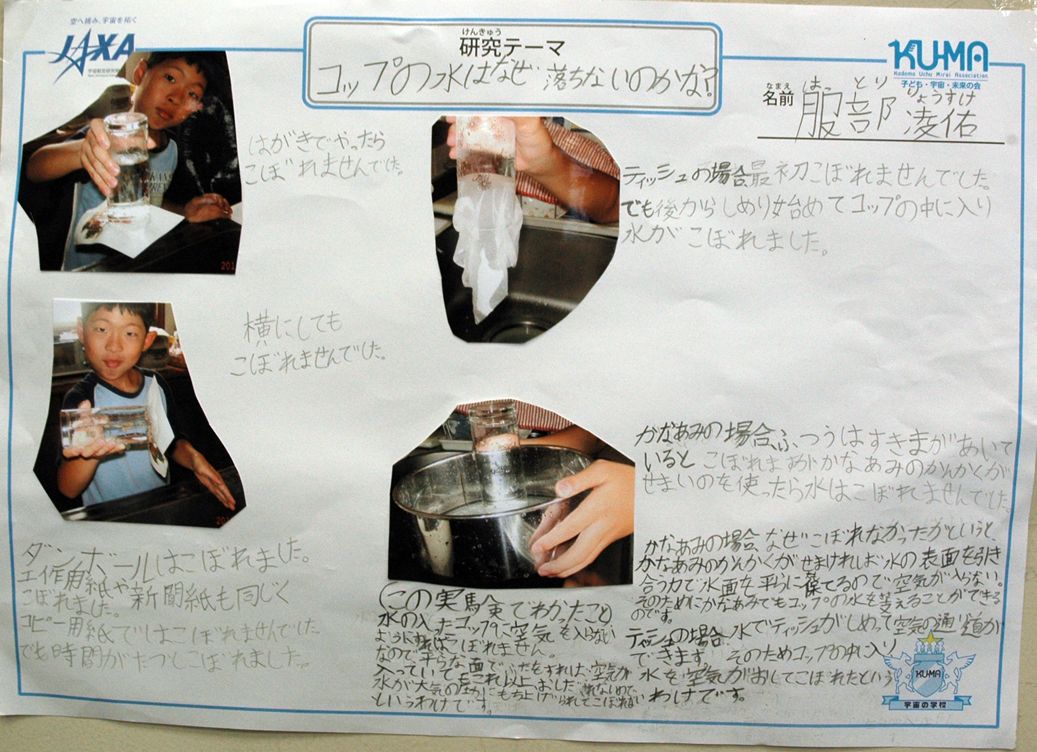 空へ挑み、宇宙を拓く
JAXA
けんきゅう
研究テーマ
コップの水はなぜ落ちないのかな?
KU-MA
Kodomo Uchu Mirai Association
子ども・宇宙・未来の会
なまえ
名前
はっ とり りょうすけ
服部 凌佑
はがきでやったら
こぼれませんでした。
ティッシュの場合、最初こぼれませんでした。
でも後からしめり始めてコップの中に入り
水がこぼれました。
横にしても
こぼれませんでした。
かなあみの場合ふつうはすきまがあいて
いるとこぼれますかなあみのかんかくが
せまいのを使ったら水はこぼれてませんでした
ダンボールはこぼれました。
工作用紙や新聞紙も同じく
こぼれました。
コピー用紙でしはこぼれませんでした
でも時間がたつとこぼれました。
この実験でわかったこと
水の入ったコップに空気を入らない
ようにすればこぼれない
なので平らな面でふたをすれば、空気が
入っていてもこれ以上
水が大気の力にもち上げられてこぼれない
というわけです。
かなあみの場合、なぜこぼれなかったがというと、
かなあみのかんかくがせまければ水の表面を引き
合う力で水面を平らに保てるので空気が入らない。
そのためにかなあみでもコップの水を支えることができる
のです。
ティシュの場合、水でティッシュがしめって空気の通り道が
できます。そのためコップの中に入り
水を空気がおしてこぼれたという
わけです。
KU-MA
宇宙の学校